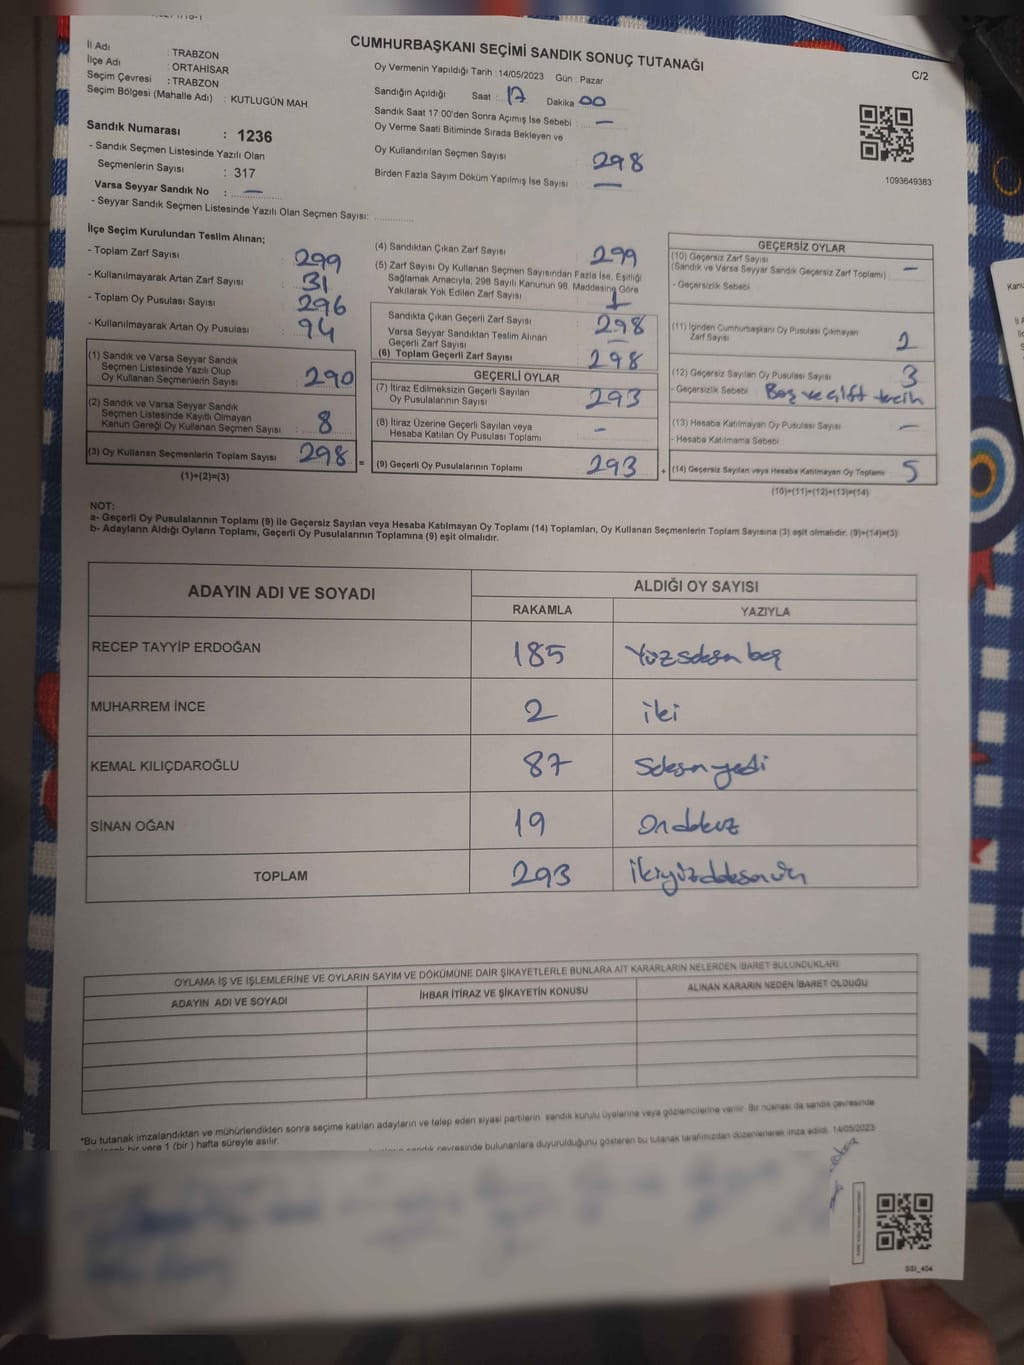 CUMHURBAŞKANI SEÇİMİ SANDIK SONUÇ TUTANAĞI
C/2
İl Adı : TRABZON
İlçe Adı : ORTAHİSAR
Seçim Çevresi : TRABZON
Seçim Bölgesi (Mahalle Adı) : KUTLUGÜN MAH.
Sandık Numarası : 1236
- Sandık Seçmen Listesinde Yazılı Olan
Seçmenlerin Sayısı : 317
Varsa Seyyar Sandık No : —
- Seyyar Sandık Seçmen Listesinde Yazılı Olan Seçmen Sayısı:
Oy Vermenin Yapıldığı Tarih : 14/05/2023 Gün : Pazar
Sandığın Açıldığı Saat : 17 Dakika 00
Sandık Saat 17:00'den Sonra Açımış İse Sebebi : —
Oy Verme Saati Bitiminde Sırada Bekleyen ve
Oy Kullandırılan Seçmen Sayısı 298
Birden Fazla Sayım Döküm Yapılmış İse Sayısı —
1093649383
İlçe Seçim Kurulundan Teslim Alınan;
- Toplam Zarf Sayısı 299
- Kullanılmayarak Artan Zarf Sayısı 31
- Toplam Oy Pusulası Sayısı 296
- Kullanılmayarak Artan Oy Pusulası 94
(1) Sandık ve Varsa Seyyar Sandık
Seçmen Listesinde Yazılı Olup
Oy Kullanan Seçmenlerin Sayısı 290
(2) Sandık ve Varsa Seyyar Sandık
Seçmen Listesinde Kayıtlı Olmayan
Kanun Gereği Oy Kullanan Seçmen Sayısı 8
(3) Oy Kullanan Seçmenlerin Toplam Sayısı 298 =
(1)+(2)=(3)
(4) Sandıktan Çıkan Zarf Sayısı 299
(5) Zarf Sayısı Oy Kullanan Seçmen Sayısından Fazla İse, Eşitliği
Sağlamak Amacıyla, 298 Sayılı Kanunun 98. Maddesine Göre
Yakılarak Yok Edilen Zarf Sayısı 1
Sandıkta Çıkan Geçerli Zarf Sayısı 298
Varsa Seyyar Sandıktan Teslim Alınan
Geçerli Zarf Sayısı —
(6) Toplam Geçerli Zarf Sayısı 298
GEÇERLİ OYLAR
(7) İtiraz Edilmeksizin Geçerli Sayılan
Oy Pusulalarının Sayısı 293
(8) İtiraz Üzerine Geçerli Sayılan veya
Hesaba Katılan Oy Pusulası Toplamı —
(9) Geçerli Oy Pusulalarının Toplamı 293 +
GEÇERSİZ OYLAR
(10) Geçersiz Zarf Sayısı
(Sandık ve Varsa Seyyar Sandık Geçersiz Zarf Toplamı) —
- Geçersizlik Sebebi
(11) İçinden Cumhurbaşkanı Oy Pusulası Çıkmayan
Zarf Sayısı 2
(12) Geçersiz Sayılan Oy Pusulası Sayısı 3
- Geçersizlik Sebebi Boş ve çift tercih
(13) Hesaba Katılmayan Oy Pusulası Sayısı —
- Hesaba Katılmama Sebebi
(14) Geçersiz Sayılan veya Hesaba Katılmayan Oy Toplamı 5
(10)+(11)+(12)+(13)=(14)
NOT:
a- Geçerli Oy Pusulalarının Toplamı (9) ile Geçersiz Sayılan veya Hesaba Katılmayan Oy Toplamı (14) Toplamları, Oy Kullanan Seçmenlerin Toplam Sayısına (3) eşit olmalıdır. (9)+(14)=(3)
b- Adayların Aldığı Oyların Toplamı, Geçerli Oy Pusulalarının Toplamına (9) eşit olmalıdır.
ADAYIN ADI VE SOYADI ALDIĞI OY SAYISI
RAKAMLA YAZIYLA
RECEP TAYYİP ERDOĞAN 185 Yüzseksen beş
MUHARREM İNCE 2 iki
KEMAL KILIÇDAROĞLU 87 Seksen yedi
SİNAN OĞAN 19 On dokuz
TOPLAM 293 İkiyüzdoksanüç
OYLAMA İŞ VE İŞLEMLERİNE VE OYLARIN SAYIM VE DÖKÜMÜNE DAİR ŞİKAYETLERLE BUNLARA AİT KARARLARIN NELERDEN İBARET BULUNDUKLARI
ADAYIN ADI VE SOYADI İHBAR İTİRAZ VE ŞİKAYETİN KONUSU ALINAN KARARIN NEDEN İBARET OLDUĞU
*Bu tutanak imzalandıktan ve mühürlendikten sonra seçime katılan adayların ve talep eden siyasi partilerin sandık kurulu üyelerine veya gözlemcilerine verilir. Bir nüshası da sandık çevresinde
bir yere 1 (bir) hafta süreyle asılır.
sandık çevresinde bulunanlara duyurulduğunu gösteren bu tutanak tarafımızdan düzenlenerek imza edildi. 14/05/2023
SSI_404